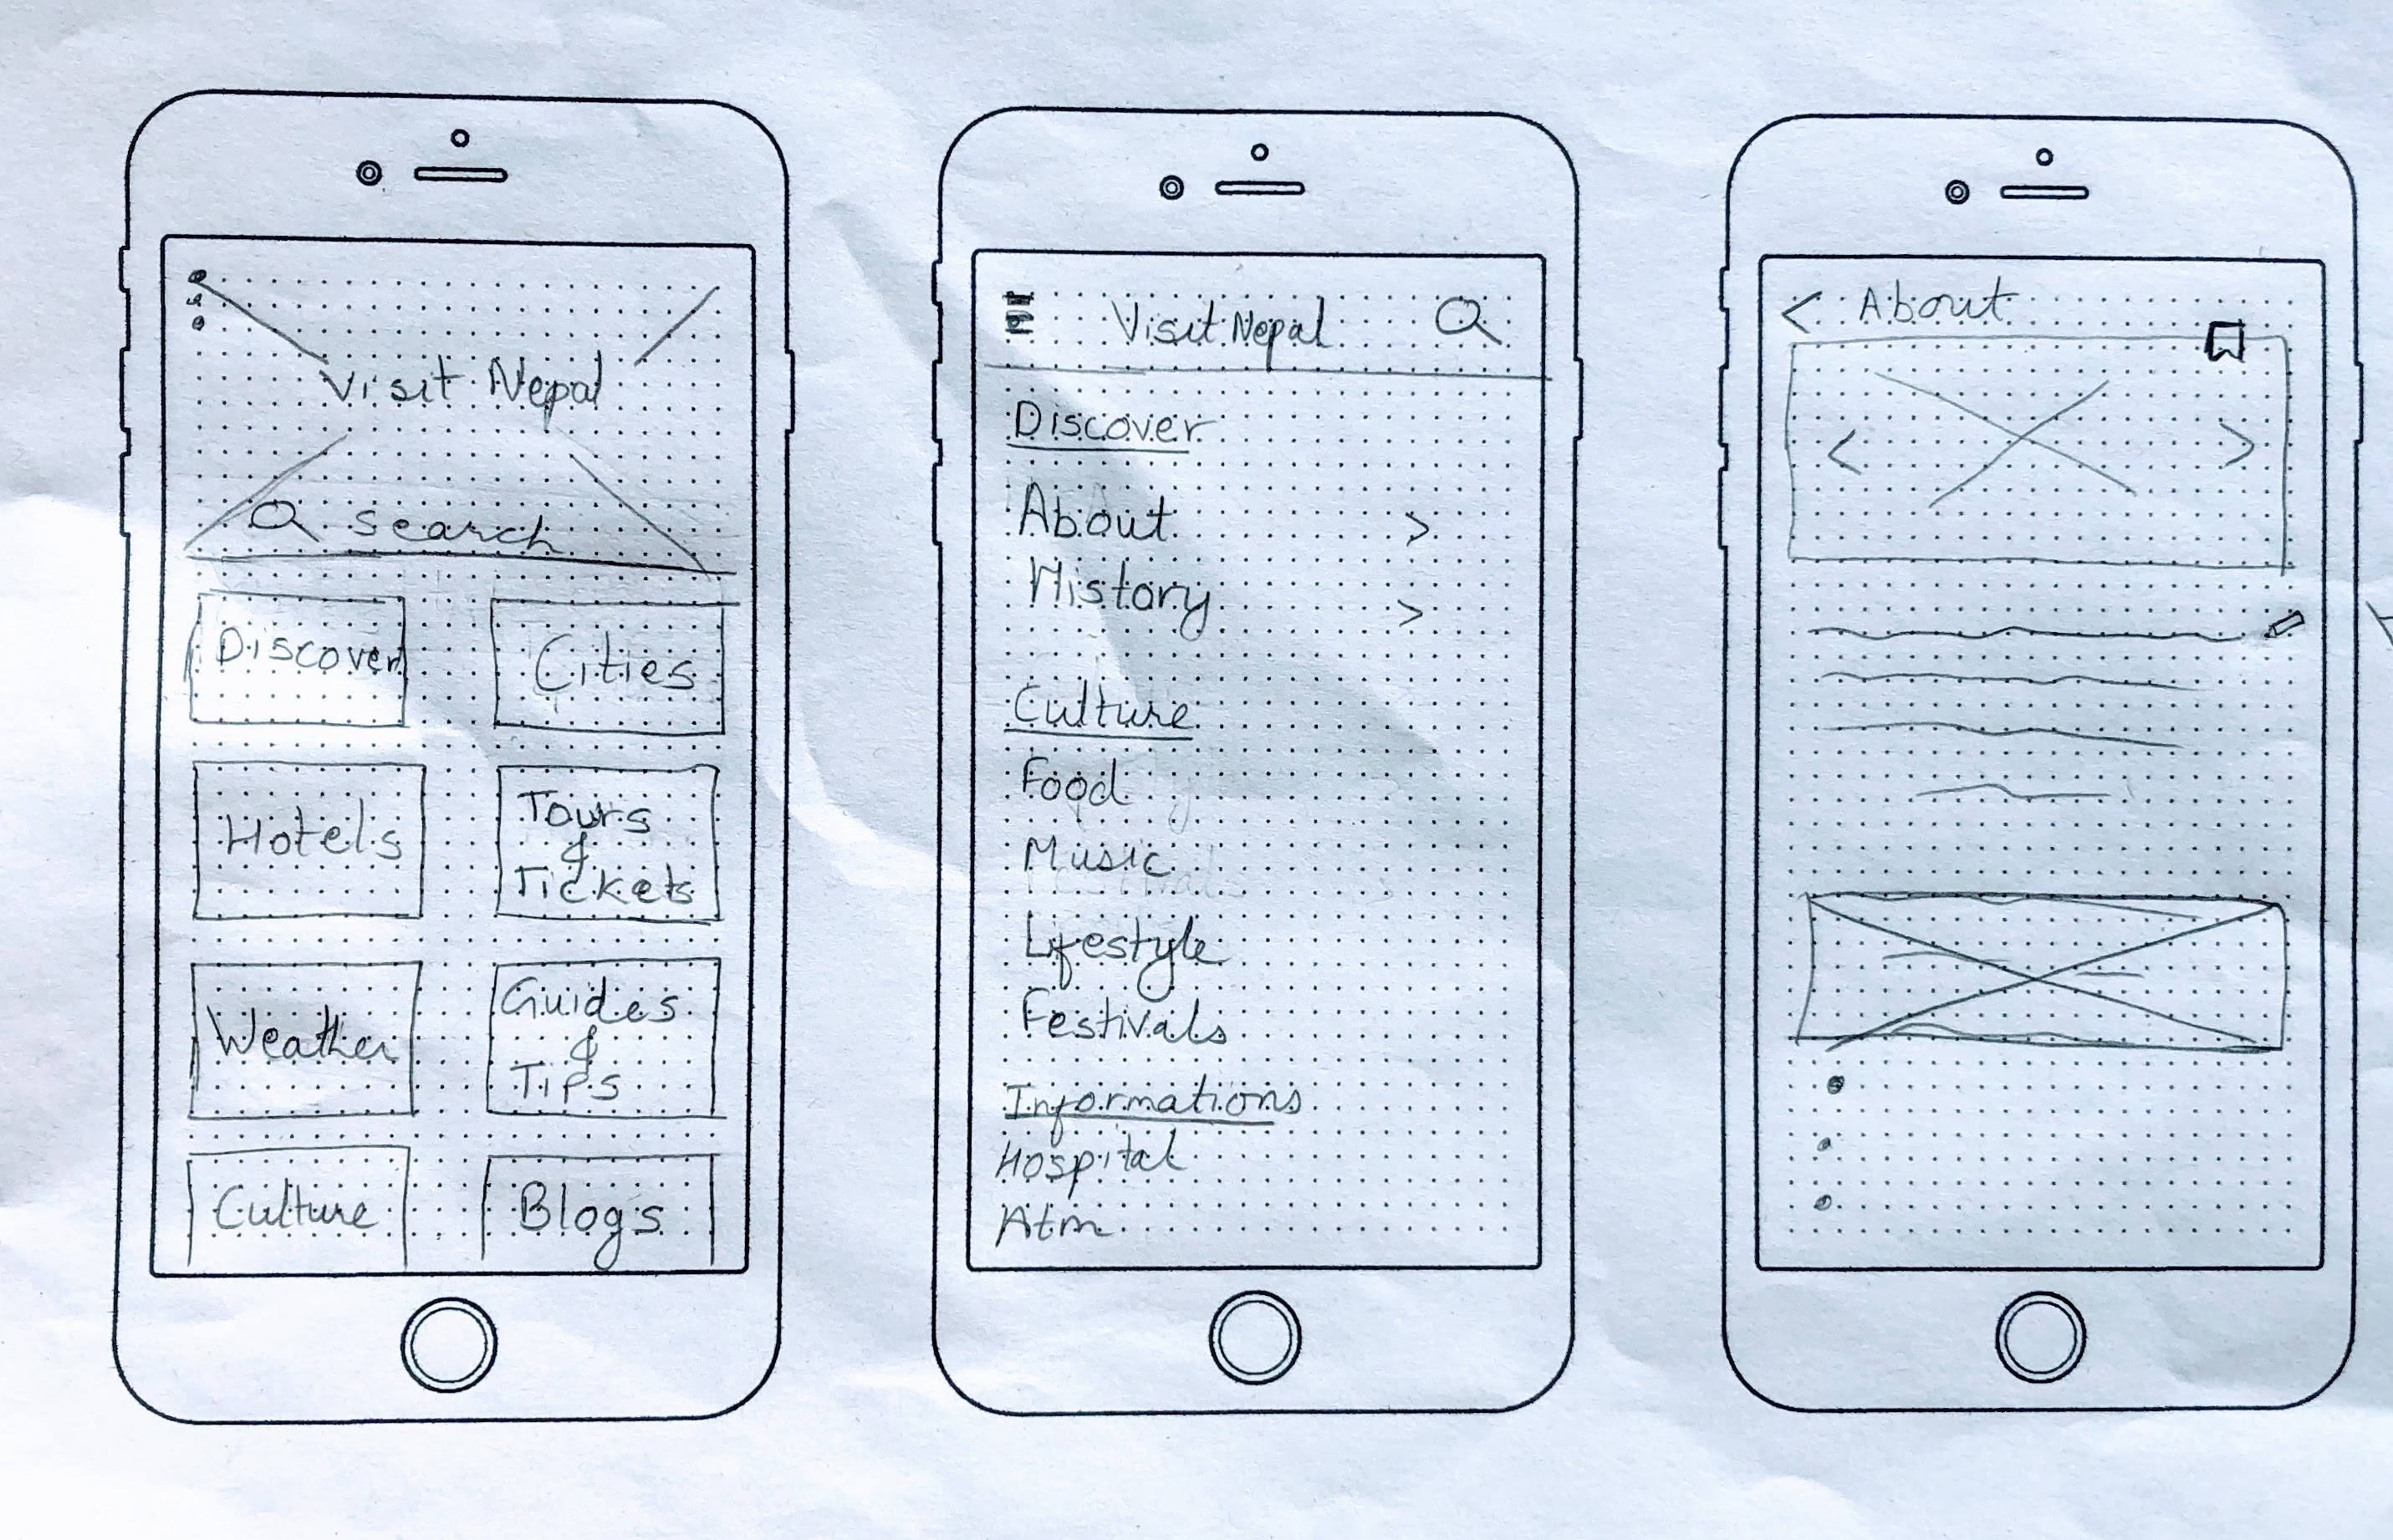 Visit Nepal
search
Discover
Cities
Hotels
Tours
&
Tickets
Weather
Guides
&
Tips
Culture
Blogs
Visit Nepal
Discover
About >
History >
Culture
Food
Music
Lifestyle
Festivals
Informations
Hospital
Atm
< About
< >